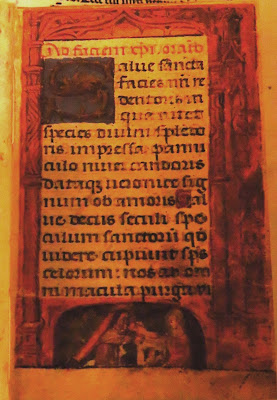 Ad faciem xpi. oratio
Salue sancta
facies nri re
dentoris in
qua nitet
species diuini splēdo
ris. impressa panni
culo niuei candoris
dataqꝫ ueronice sig
num ob amoris Sal
ue decus seculi spe
culum sanctorū qd
uidere cupiunt sps
celorum: nos ab om
ni macula purga ui